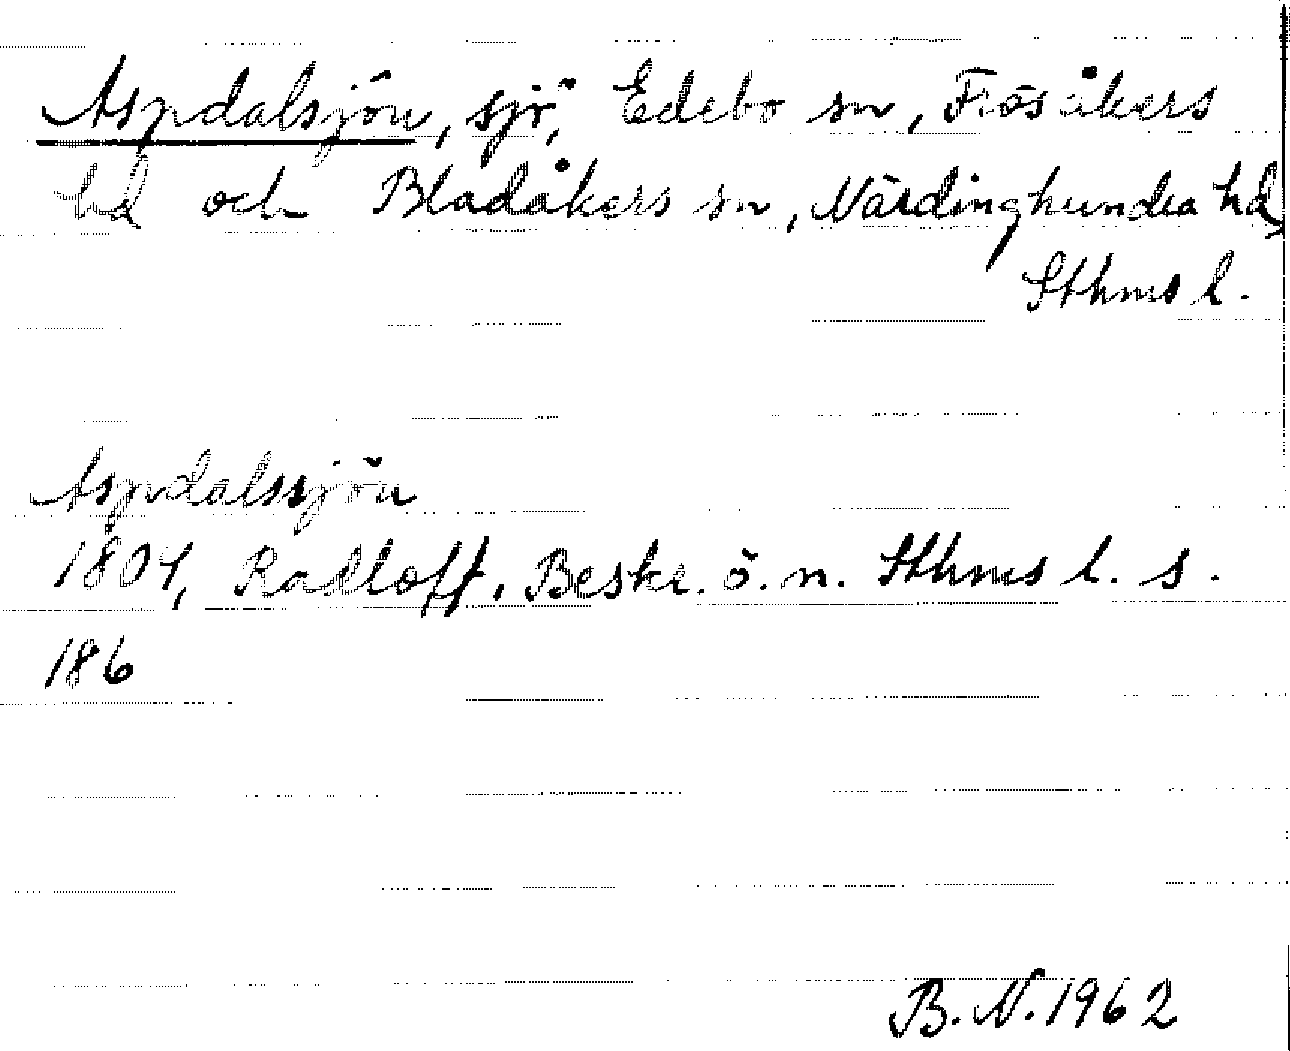 Aspdalsjön, sjö, Edebo sn, Frösåkers
hd och Bladåkers sn, Närdinghundra hd,
Sthms l.
Aspdalssjön
1804, Radloff, Beskr. ö. n. Sthms l. s.
186
B. N. 1962